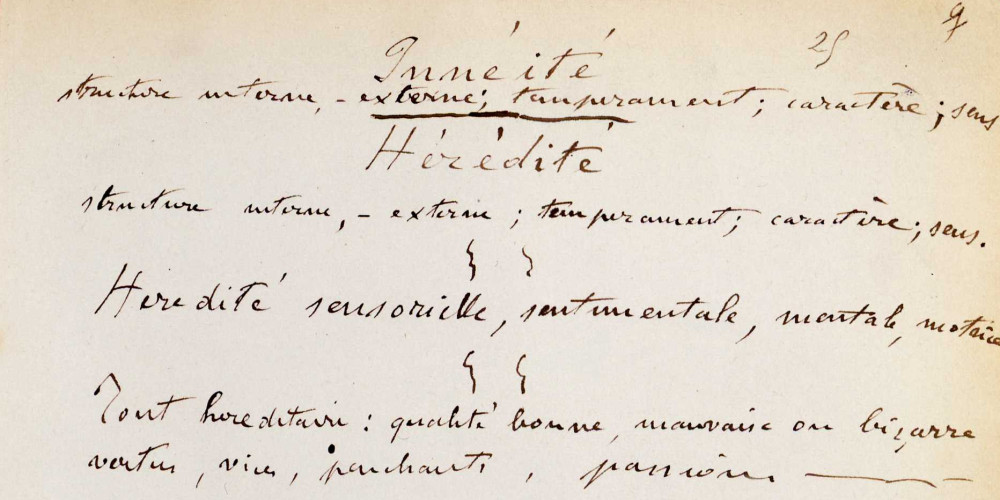 25 9
Innéité
structure interne, - externe; tempérament; caractère; sens
Hérédité
structure interne, - externe; tempérament; caractère; sens.
Heredité sensorielle, sentimentale, mentale, motrice
Tout hereditaire: qualité bonne, mauvaise ou bizarre
vertus, vices, penchants, passion